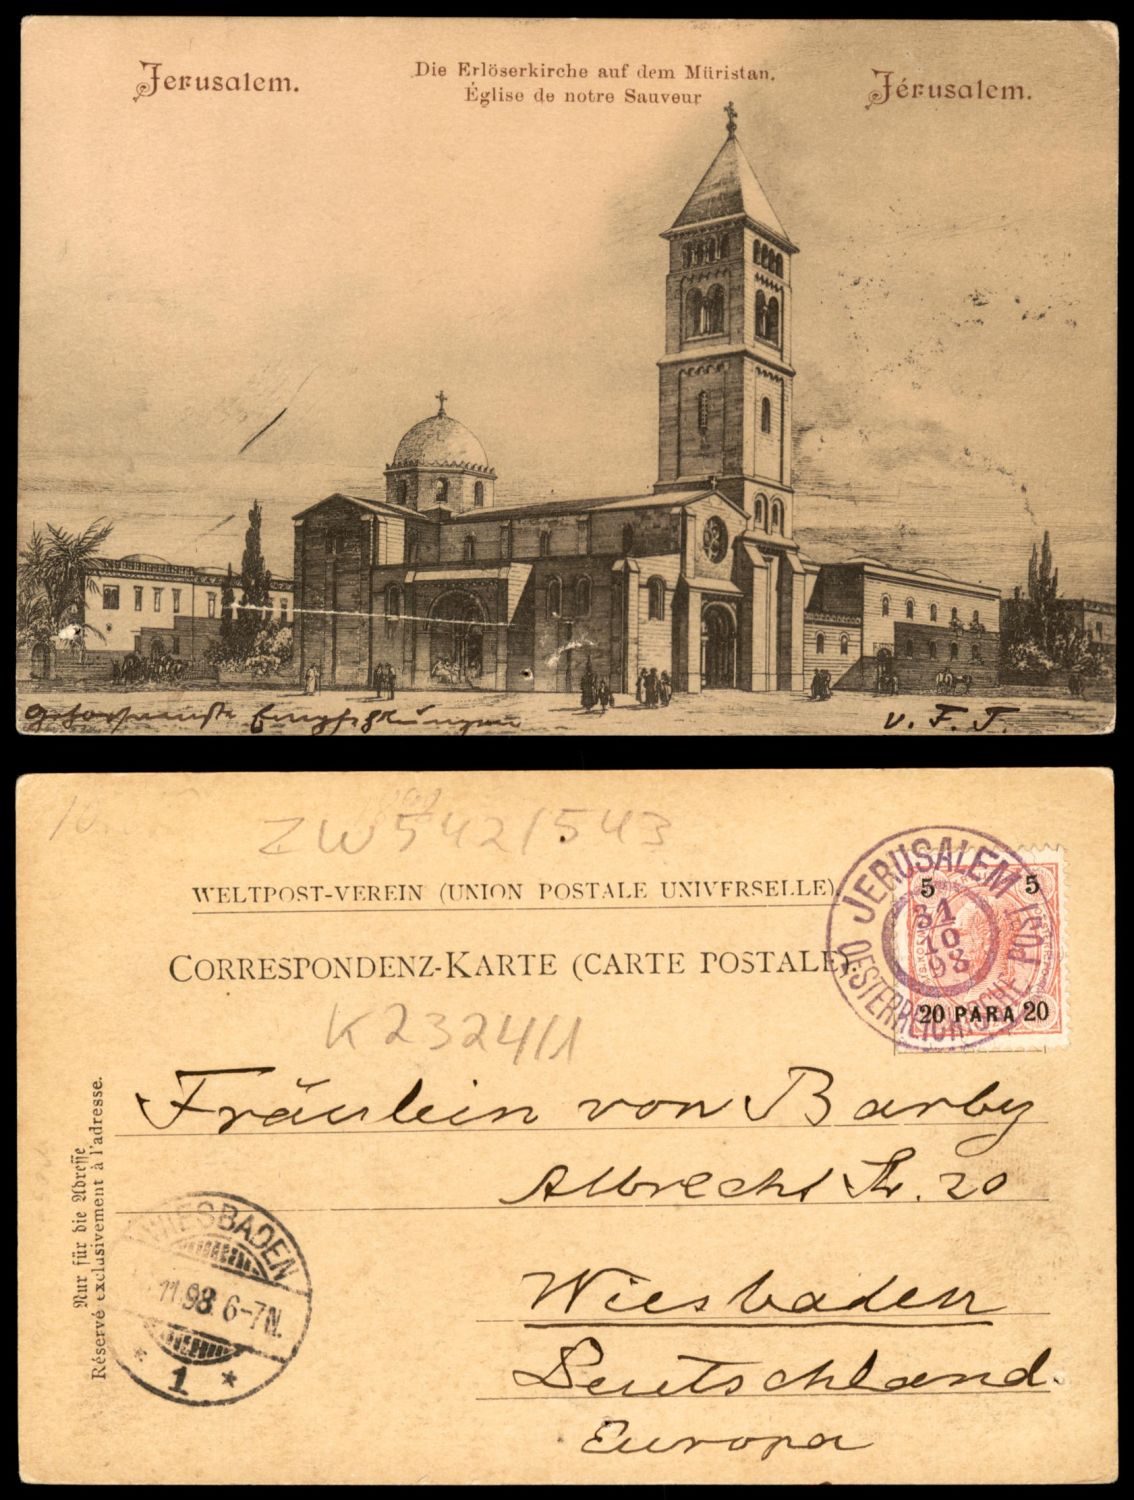 Jerusalem.
Die Erlöserkirche auf dem Müristan.
Église de notre Sauveur
Jérusalem.
v. F. T.
ZW542/543
WELTPOST-VEREIN (UNION POSTALE UNIVERSELLE).
CORRESPONDENZ-KARTE (CARTE POSTALE).
K2324/1
JERUSALEM
OESTERREICHISCHE POST
31
10
98
5 5
20 PARA 20
Fräulein von Barby
Albrecht Str. 20
Wiesbaden
Deutschland.
Europa
Nur für die Adresse
Réservé exclusivement à l'adresse.
WIESBADEN
11.98. 6-7N.
* 1 *